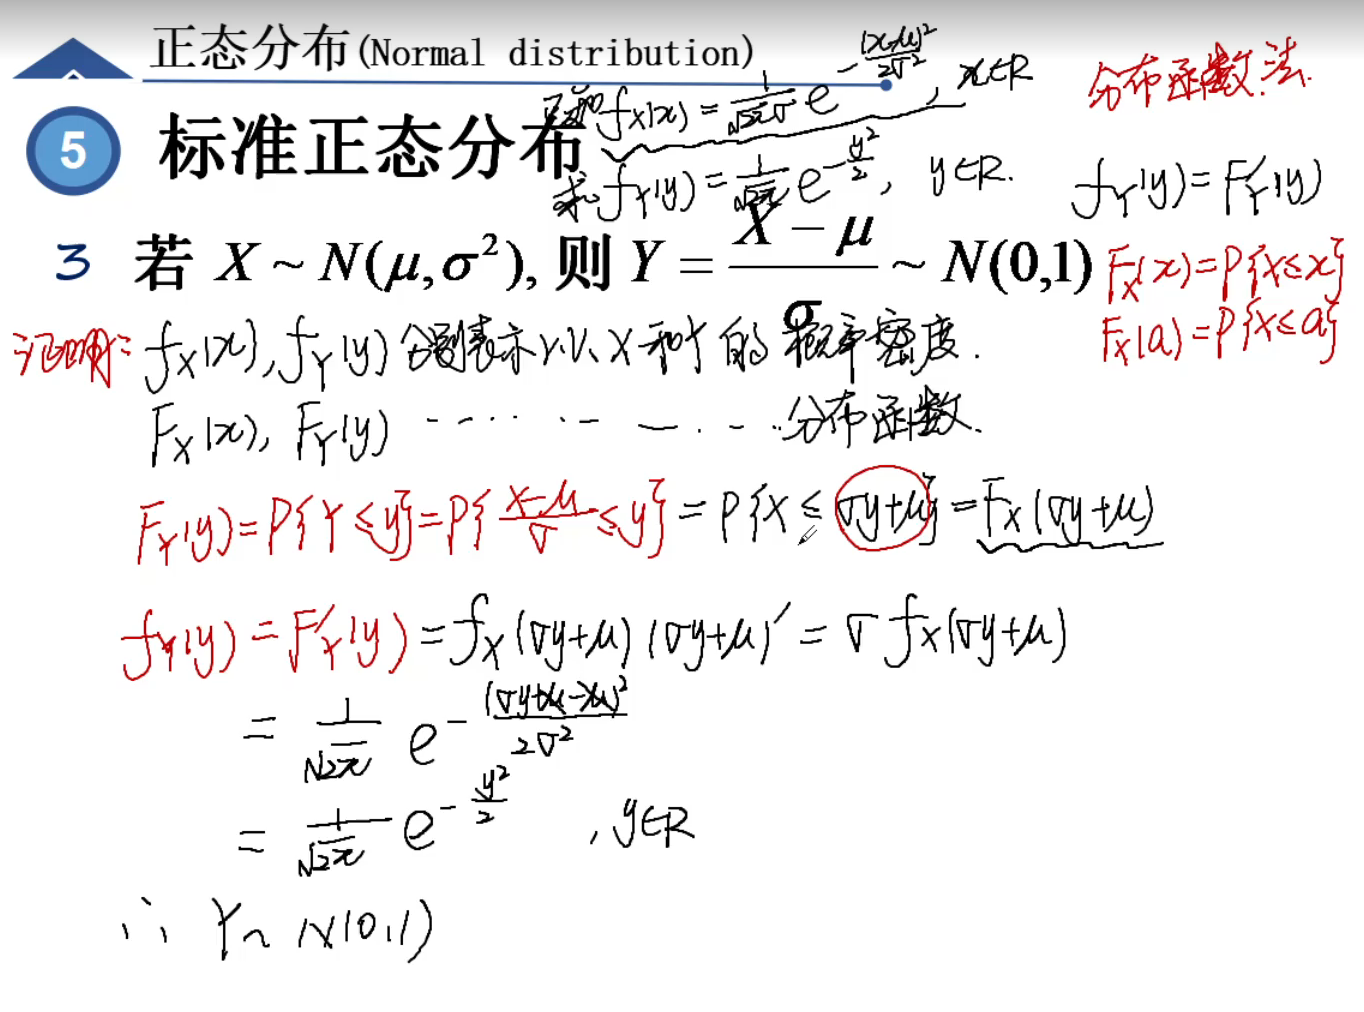 正态分布(Normal distribution)
已知 f_X(x) = 1/(√2π σ) e^(-(x-μ)²/(2σ²)), x∈R
分布函数法.
5 标准正态分布
求 f_Y(y) = 1/√2π e^(-y²/2), y∈R.
f_Y(y) = F'_Y(y)
3 若 X ~ N(μ,σ²), 则 Y = (X − μ)/σ ~ N(0,1)
F_X(x) = P{X ≤ x}
F_X(a) = P{X ≤ a}
证明: f_X(x), f_Y(y) 分别表示 r.v. X 和 Y 的概率密度.
F_X(x), F_Y(y) - - · · · - — · - · 分布函数.
F_Y(y) = P{Y ≤ y} = P{(X-μ)/σ ≤ y} = P{X ≤ σy+μ} = F_X(σy+μ)
f_Y(y) = F'_Y(y) = f_X(σy+μ)(σy+μ)' = σ f_X(σy+μ)
= 1/√2π e^(-(σy+μ-μ)²/(2σ²))
= 1/√2π e^(-y²/2), y∈R
∴ Y ~ N(0,1)